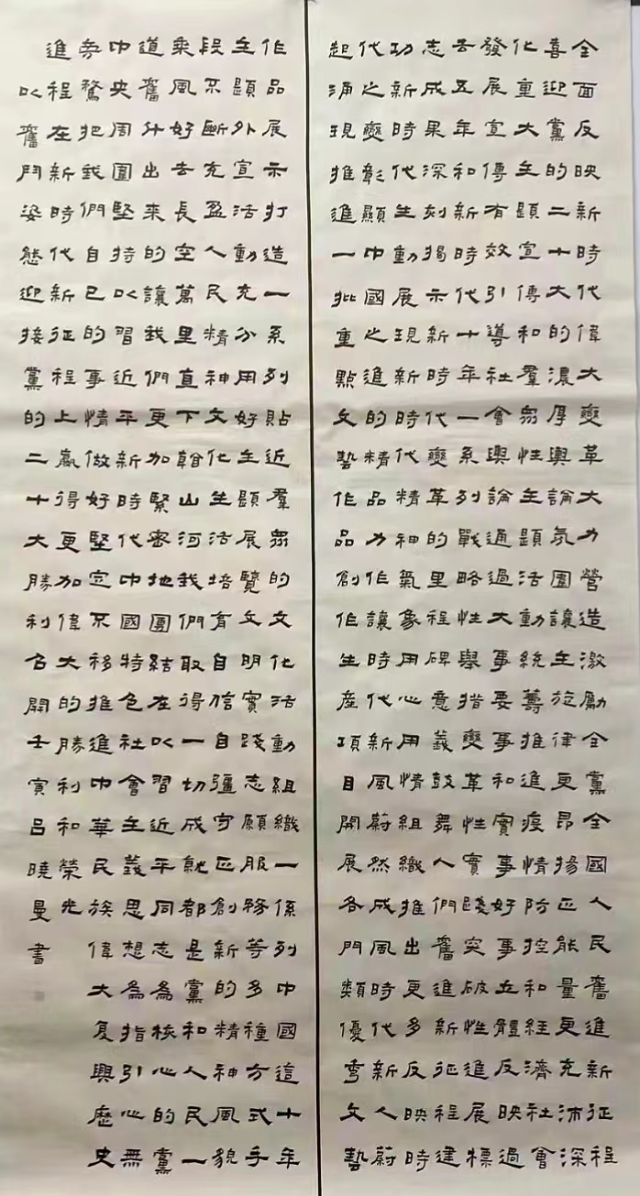 全面反映新時代偉大變革大力營造激勵全黨全國人民奮進新征程
喜迎黨的二十大的濃厚輿論氛圍讓主旋律更昂揚正能量更充沛深
化重大主題宣傳和羣眾性主題活動統籌推進疫情防控和經濟社會
發展宣傳有效引導社會輿論通過大事要事和實事好事五體反映過
去五年和新時代十年一系列戰略性舉措變革性實踐突破性進展標
志成果深刻揭示新時代變革的里程碑意義鼓舞人們奮進新征程建
功新時代生動展現新時代精神氣象用心用情組織推出更多反映時
代之變彰顯中國之進的精品力作讓時代新風蔚然成風時代新人蔚
起涌現推進一批重點文藝作品創作生產項目開展各門類優秀文藝
作品展示打造一系列貼近羣眾的文化活動組織一係列中國這十年
主題外宣活動充分用好主題展覽文明實踐志願服務等多種方式手
段不斷充盈人民精神文化生活培有自信自強守正創新的精神風貌
乘風好去長空萬里直下翰山河我們取得一切成就都是黨和人民一
道奮什出來的讓我們更加緊密地團結在以習近平同志為核心的黨
中央周圍堅持以習近平新時代中國特色社會主義思想為指引心無
旁鶩把我們自己的事情做好堅定不移推進中華民族偉大復興歷史
進程在新時代新征程上贏得更加偉大的勝利和榮光
以奮鬥姿態迎接黨的二十大勝利召開壬寅呂曉曼書